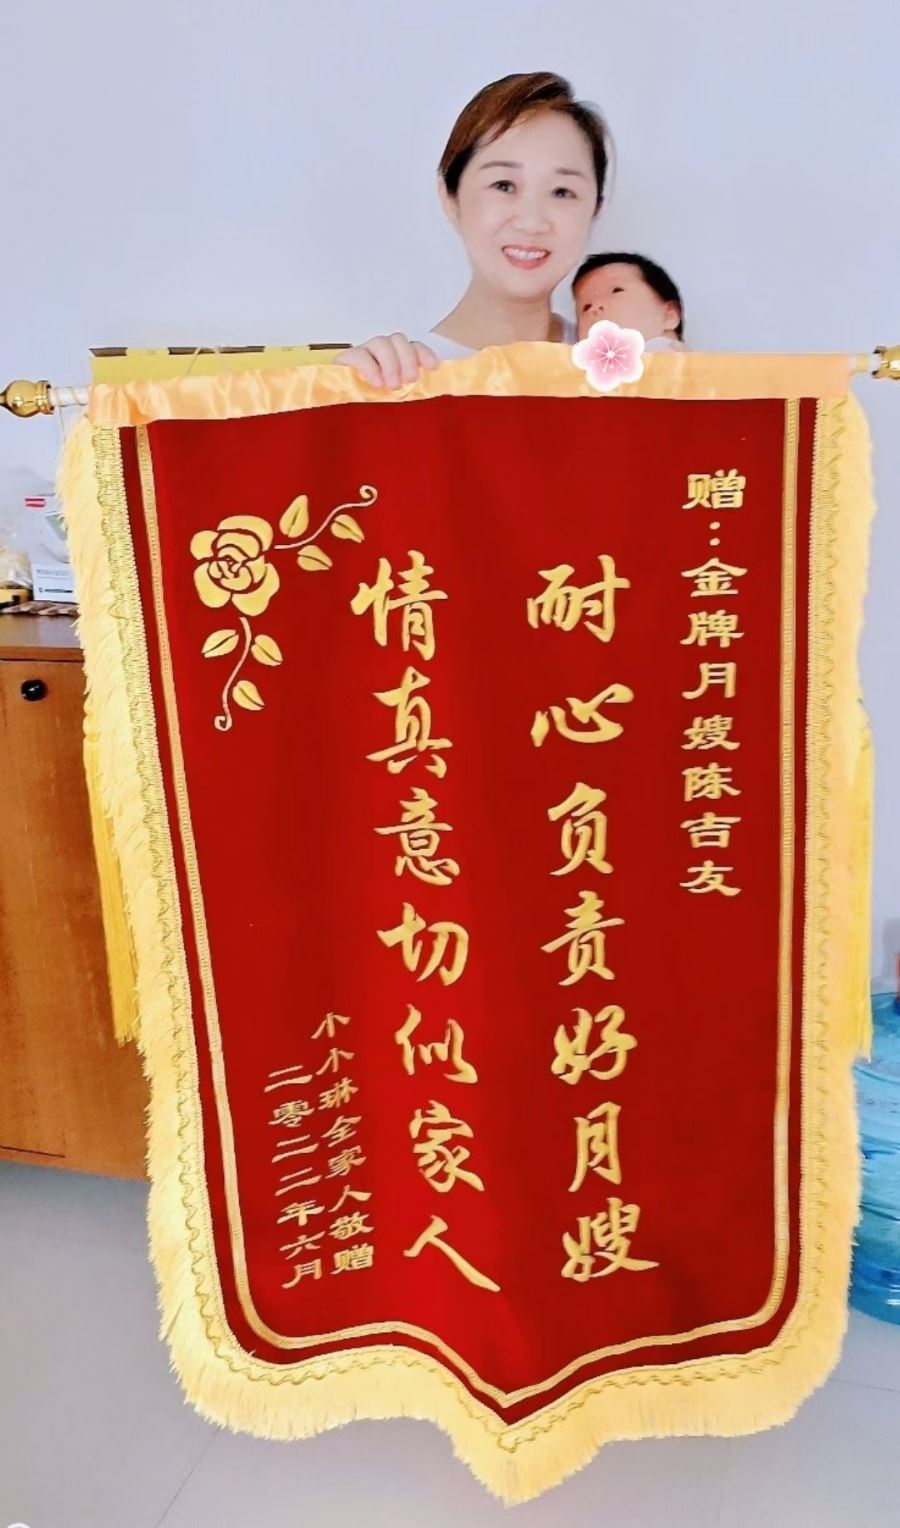 赠：金牌月嫂陈吉友
耐心负责好月嫂
情真意切似家人
小小琳全家人敬赠
二零二二年六月